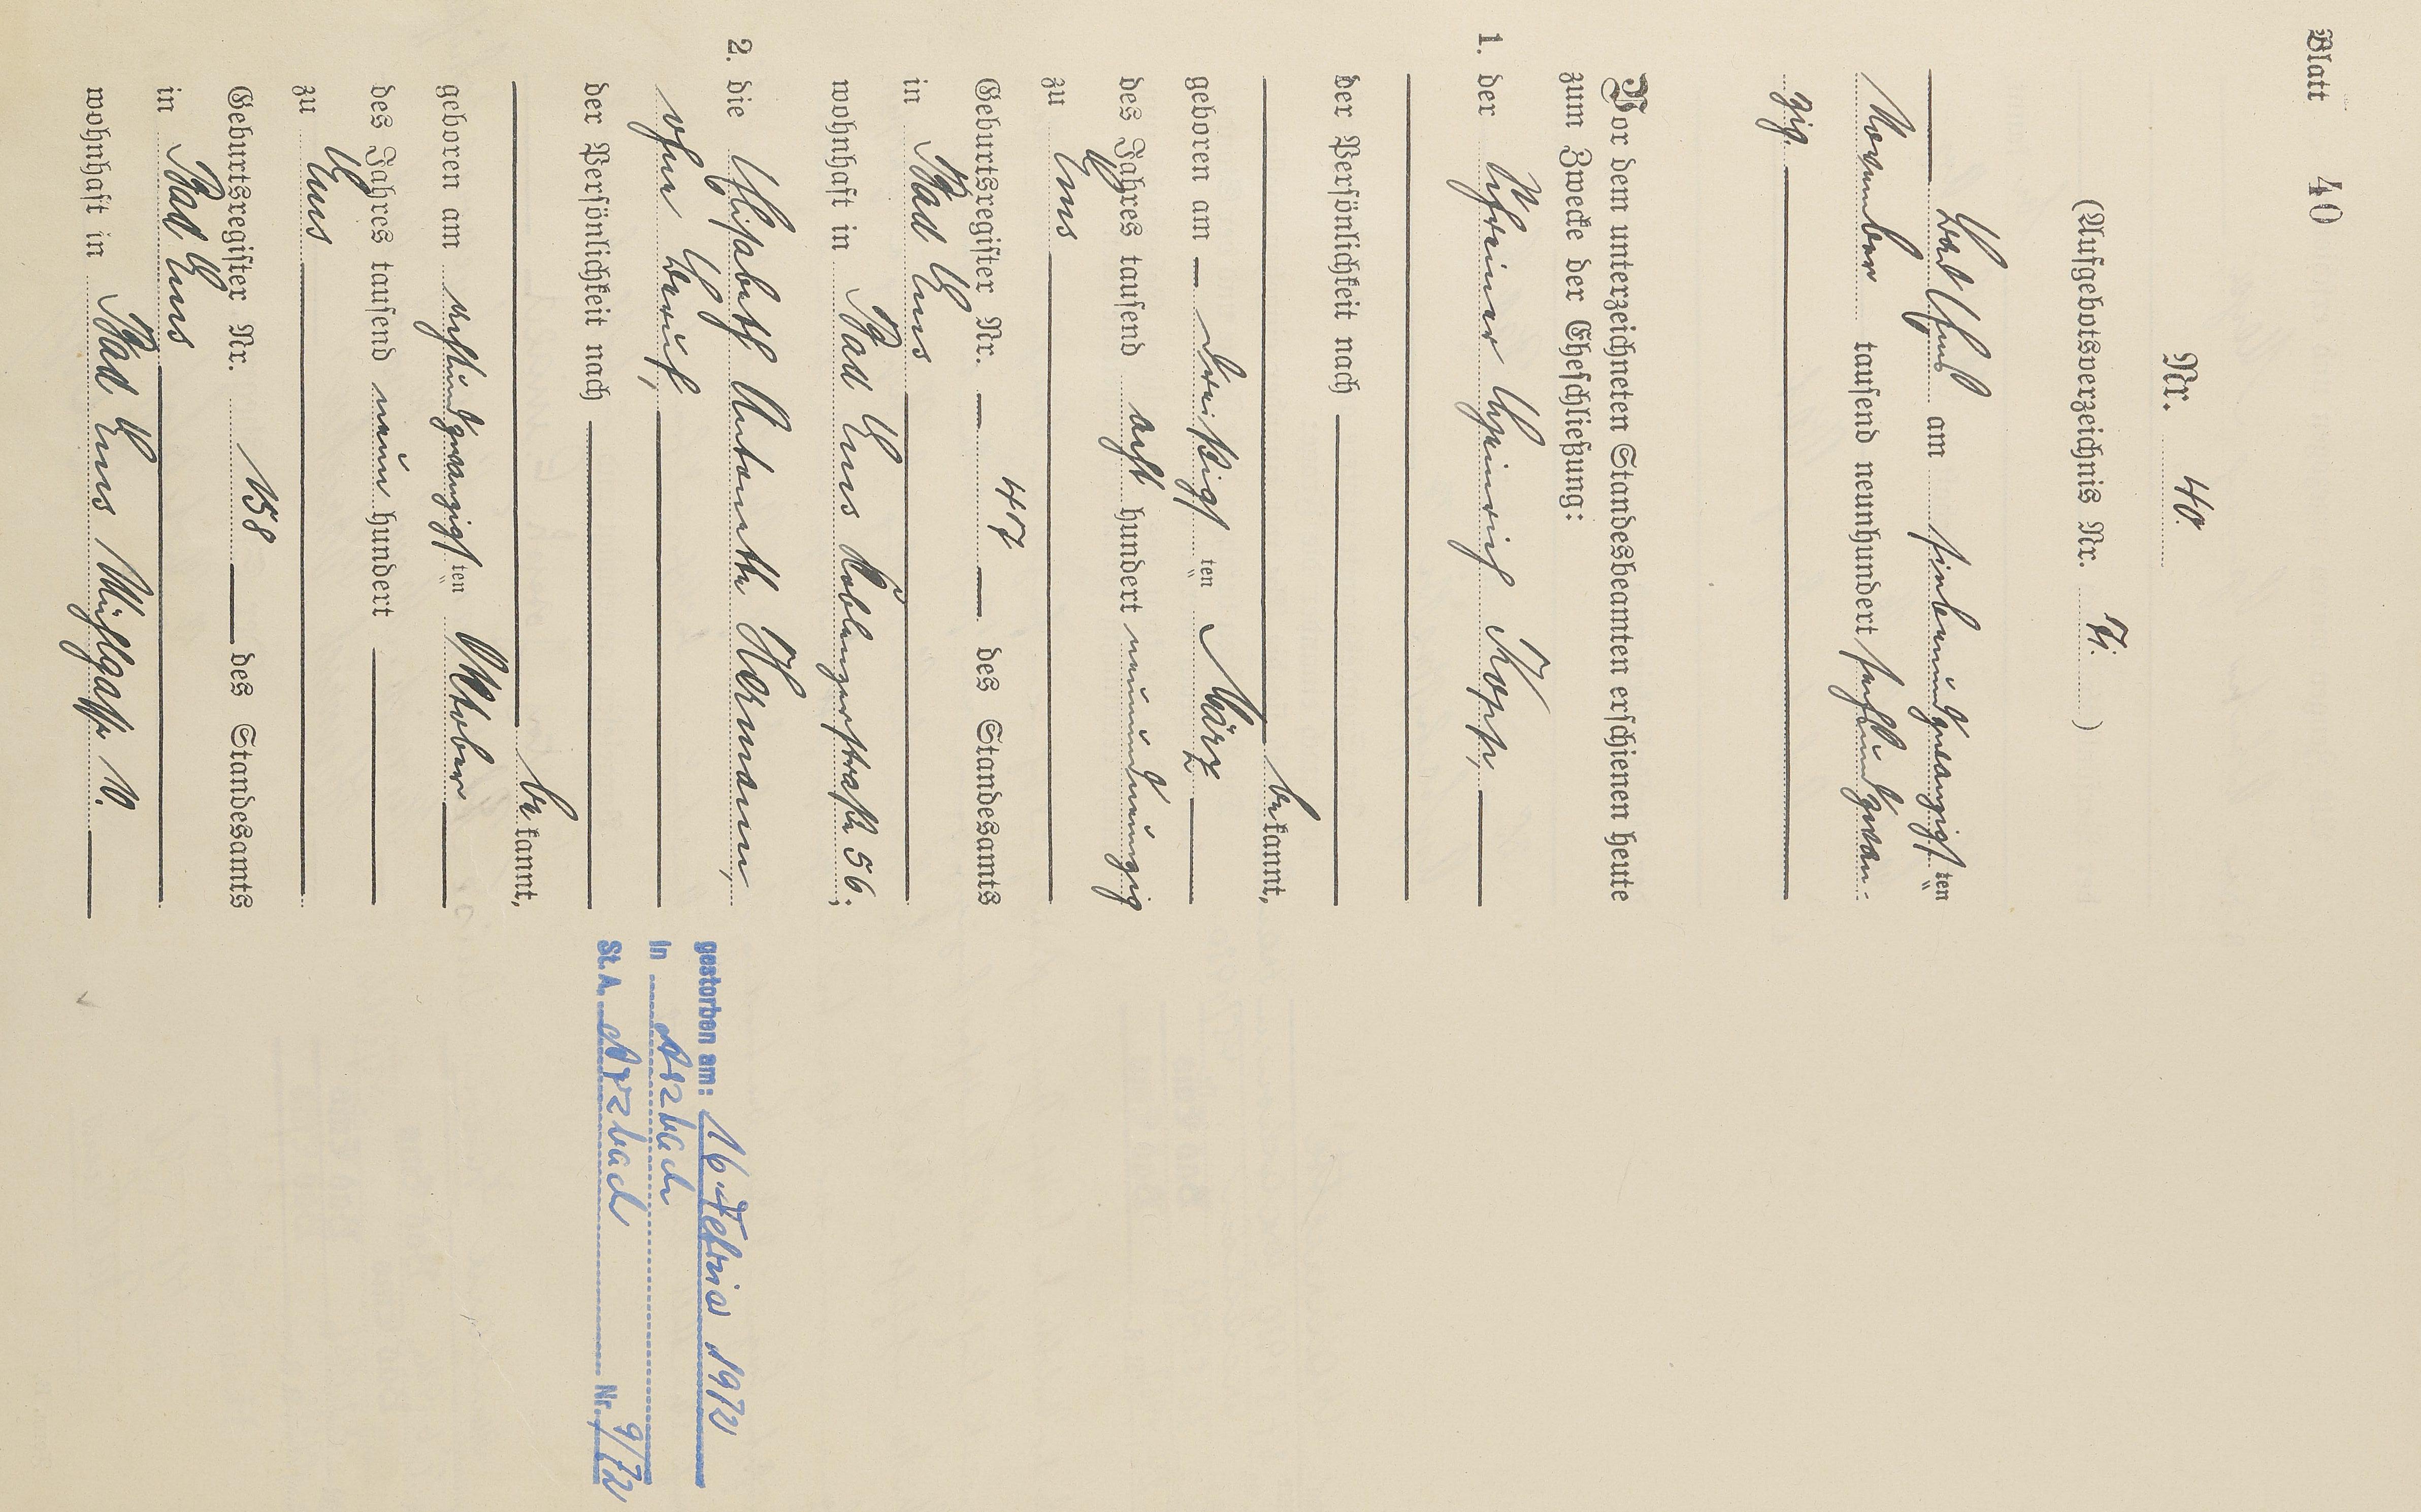 Blatt 40
Nr. 40.
(Aufgebotsverzeichnis Nr. )
Bad Ems am siebenundzwanzigst ten
November tausend neunhundert sechsundzwan-
zig.
Vor dem unterzeichneten Standesbeamten erschienen heute
zum Zwecke der Eheschließung:
1. der Schreiner Heinrich Kopp,
der Persönlichkeit nach
be kannt,
geboren am dreißigst ten März
des Jahres tausend acht hundert neunundneunzig
zu Ems
Geburtsregister Nr. 47 des Standesamts
in Bad Ems
wohnhaft in Bad Ems Coblenzerstraße 56;
2. die Elisabeth Antonette Hermann,
ohne Beruf,
der Persönlichkeit nach
be kannt,
geboren am achtundzwanzigst ten Oktober
des Jahres tausend neun hundert
zu Ems
Geburtsregister Nr. 158 des Standesamts
in Bad Ems
wohnhaft in Bad Ems
gestorben am: 16. Februar 1972
in Arzbach
St. A. Arzbach Nr. 9/72